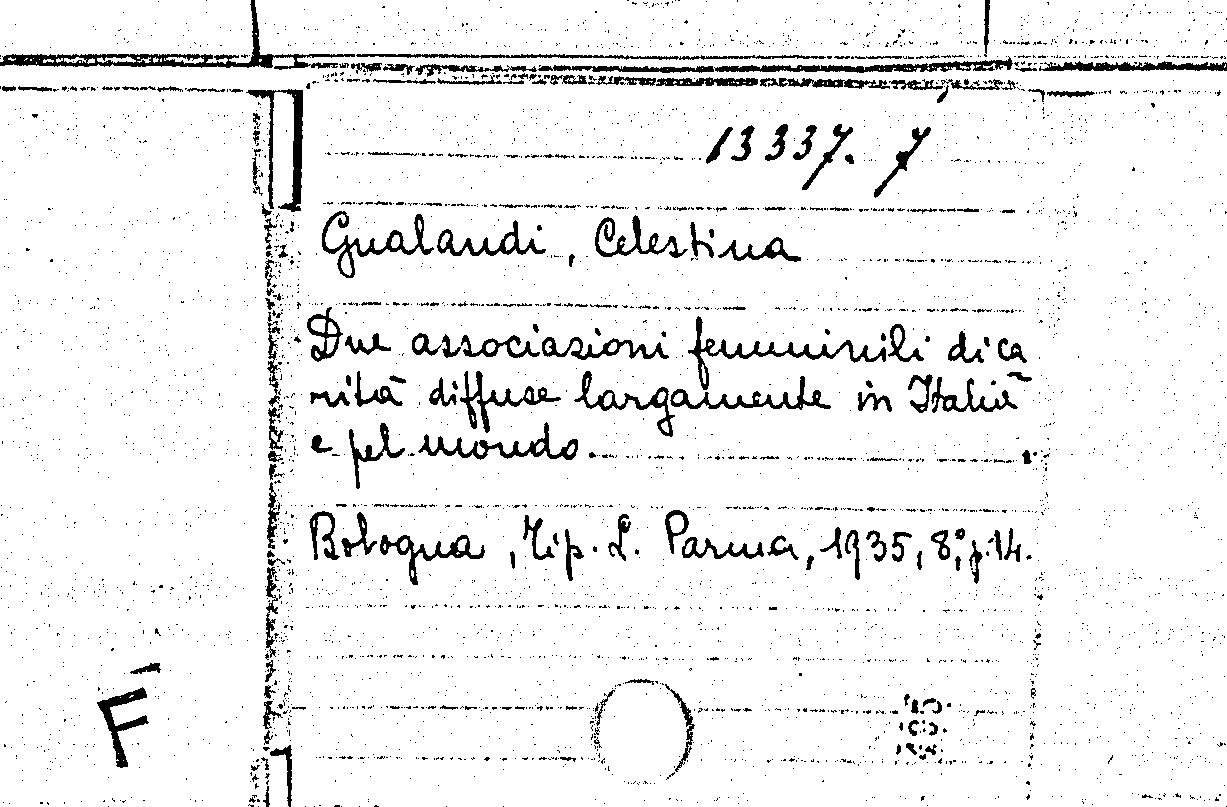 13337. 7
Gualandi, Celestina
Due associazioni femminili di ca
rità diffuse largamente in Italia
e pel mondo.
Bologna, Tip. L. Parma, 1935, 8°, p. 14.
F